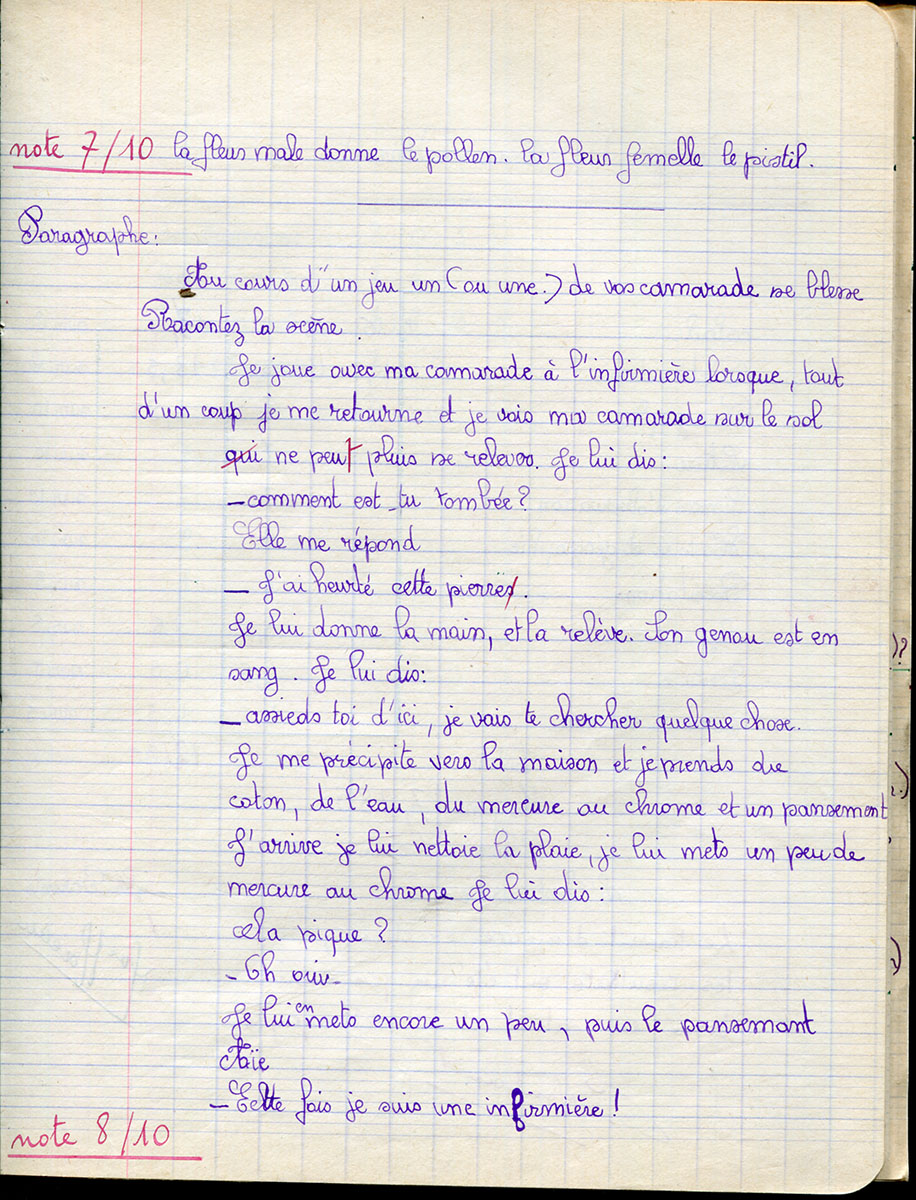 note 7/10 la fleur male donne le pollen. la fleur femelle le pistil.
Paragraphe:
Au cours d'un jeu un (ou une.) de vos camarade se blesse
Racontez la scène.
Je joue avec ma camarade à l'infirmière lorsque, tout
d'un coup je me retourne et je vois ma camarade sur le sol
qui ne peut pluis se relever. Je lui dis:
– comment est-tu tombée?
Elle me répond
– J'ai heurté cette pierre.
Je lui donne la main, et la relève. Son genou est en
sang. Je lui dis:
– assieds toi d'ici, je vais te chercher quelque chose.
Je me précipite vers la maison et je prends du
coton, de l'eau, du mercure au chrome et un pansement
J'arrive je lui nettoie la plaie, je lui mets un peu de
mercure au chrome Je lui dis:
cela pique?
- Oh oui-
Je lui en mets encore un peu, puis le pansemant
Aïe
– Cette fois je suis une infirmière!
note 8/10